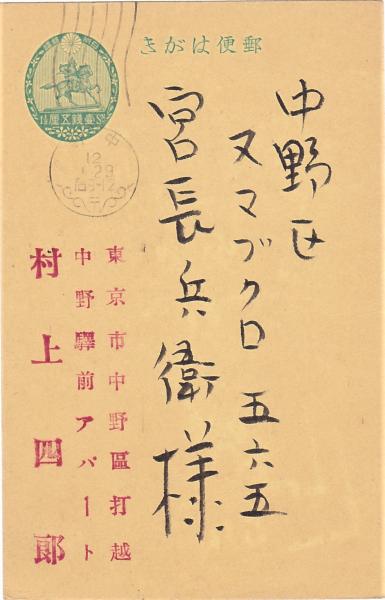 郵便はがき
壹錢五厘
中野
12
1.29
后8-12
中野区
ヌマブクロ 五六五
宮長兵衛様
東京市中野區打越
中野驛前アパート
村上四郎